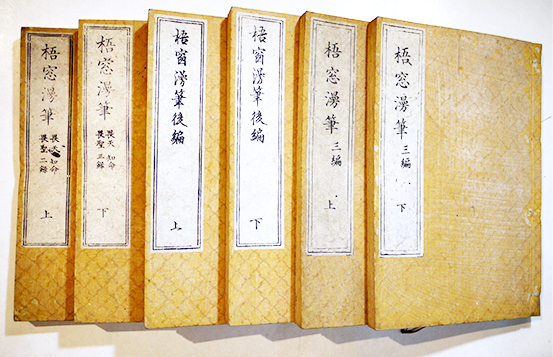 梧窓漫筆
畏天 知命
畏聖 二録
上
梧窓漫筆
畏天 知命
畏聖 三録
下
梧窗漫筆後編
上
梧窗漫筆後編
下
梧窓漫筆 三編
上
梧窓漫筆 三編
下